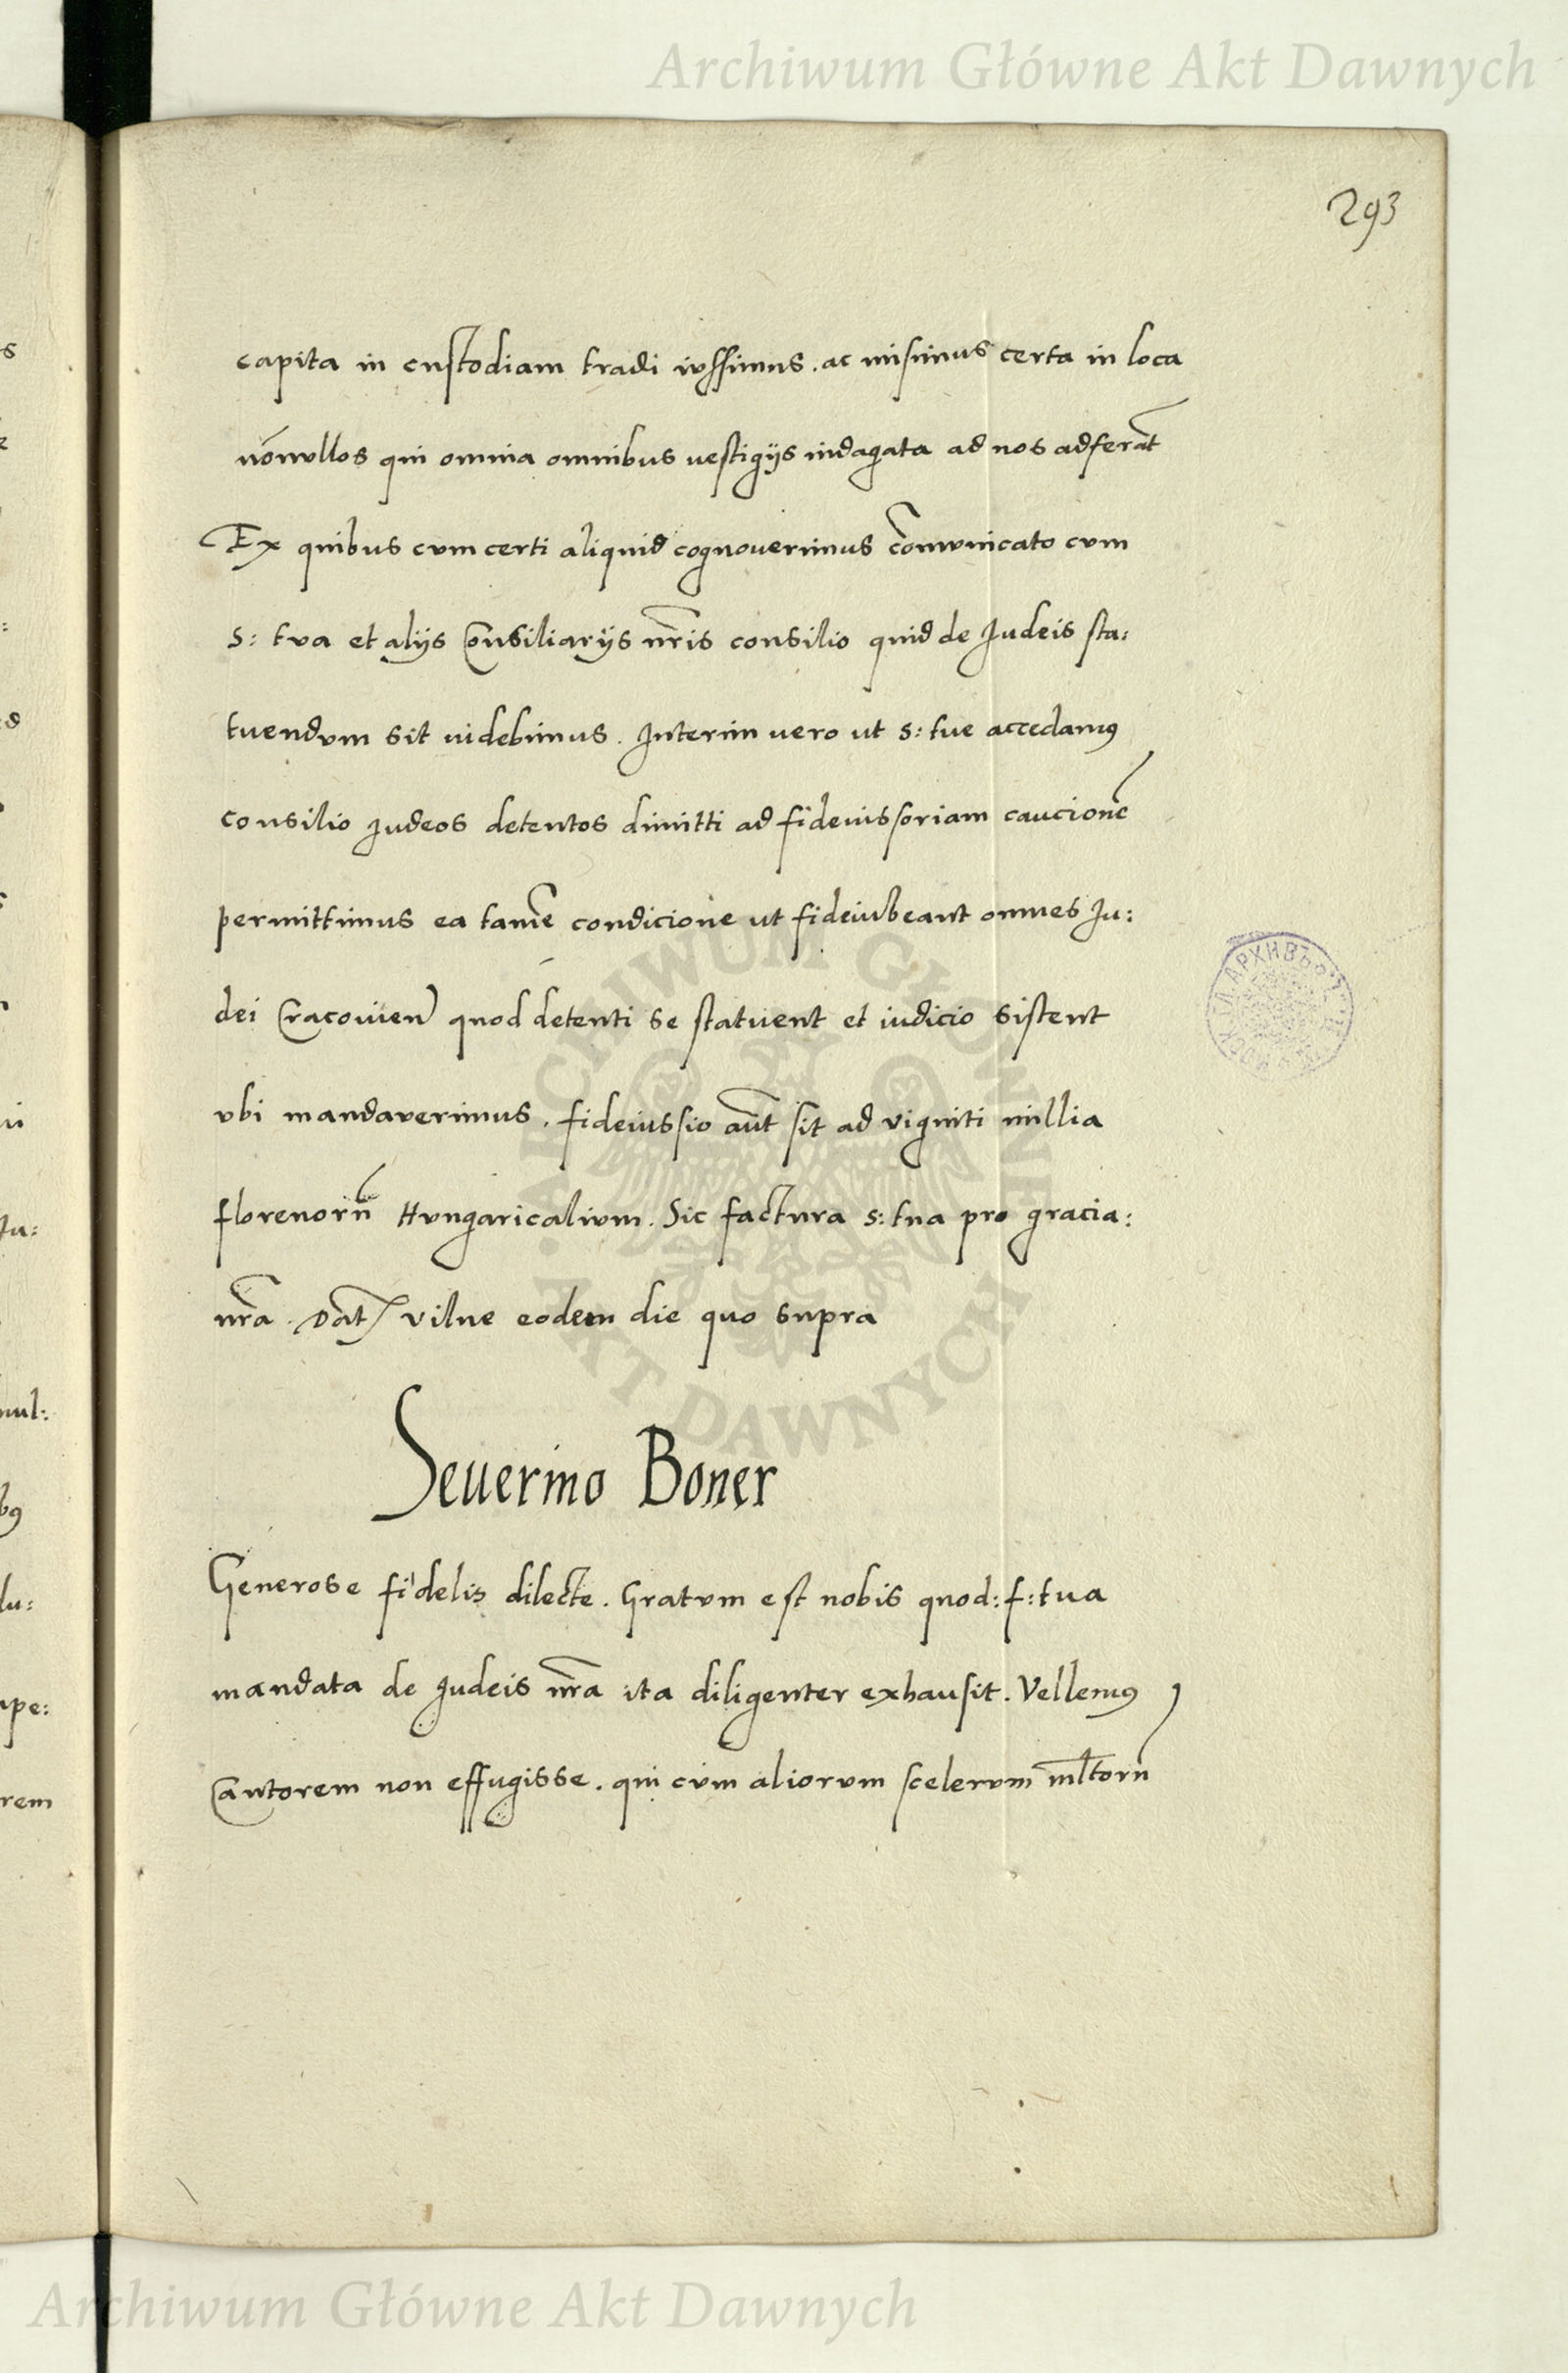 Archiwum Główne Akt Dawnych
293
capita in custodiam tradi iussimus . ac misimus certa in loca
nōnullos qui omnia omnibus uestigijs indagata ad nos adferāt
Ex quibus cum certi aliquid cognouerimus cōmunicato cum
s: tua et alijs Consiliarijs nr̄is consilio quid de Judeis sta:
tuendum sit uidebimus . Interim uero ut s: tue accedamus
consilio Judeos detentos dimitti ad fideiussoriam caucionē
permittimus ea tamē condicione ut fideiubeant omnes Ju:
dei Cracouien) quod detenti se statuent et iudicio sistent
vbi mandauerimus . fideiussio aūt sit ad viginti millia
florenorū Hungaricalium . Sic factura s: tua pro gracia:
nr̄a . Dat) vilne eodem die quo supra
Seuerino Boner
Generose fidelis dilecte . Gratum est nobis quod : f: tua
mandata de Judeis nr̄a ita diligenter exhausit . Vellemus
Cantorem non effugisse . qui cum aliorum scelerum ml̄torū
ARCHIWUM GŁÓWNE
AKT DAWNYCH
Archiwum Główne Akt Dawnych